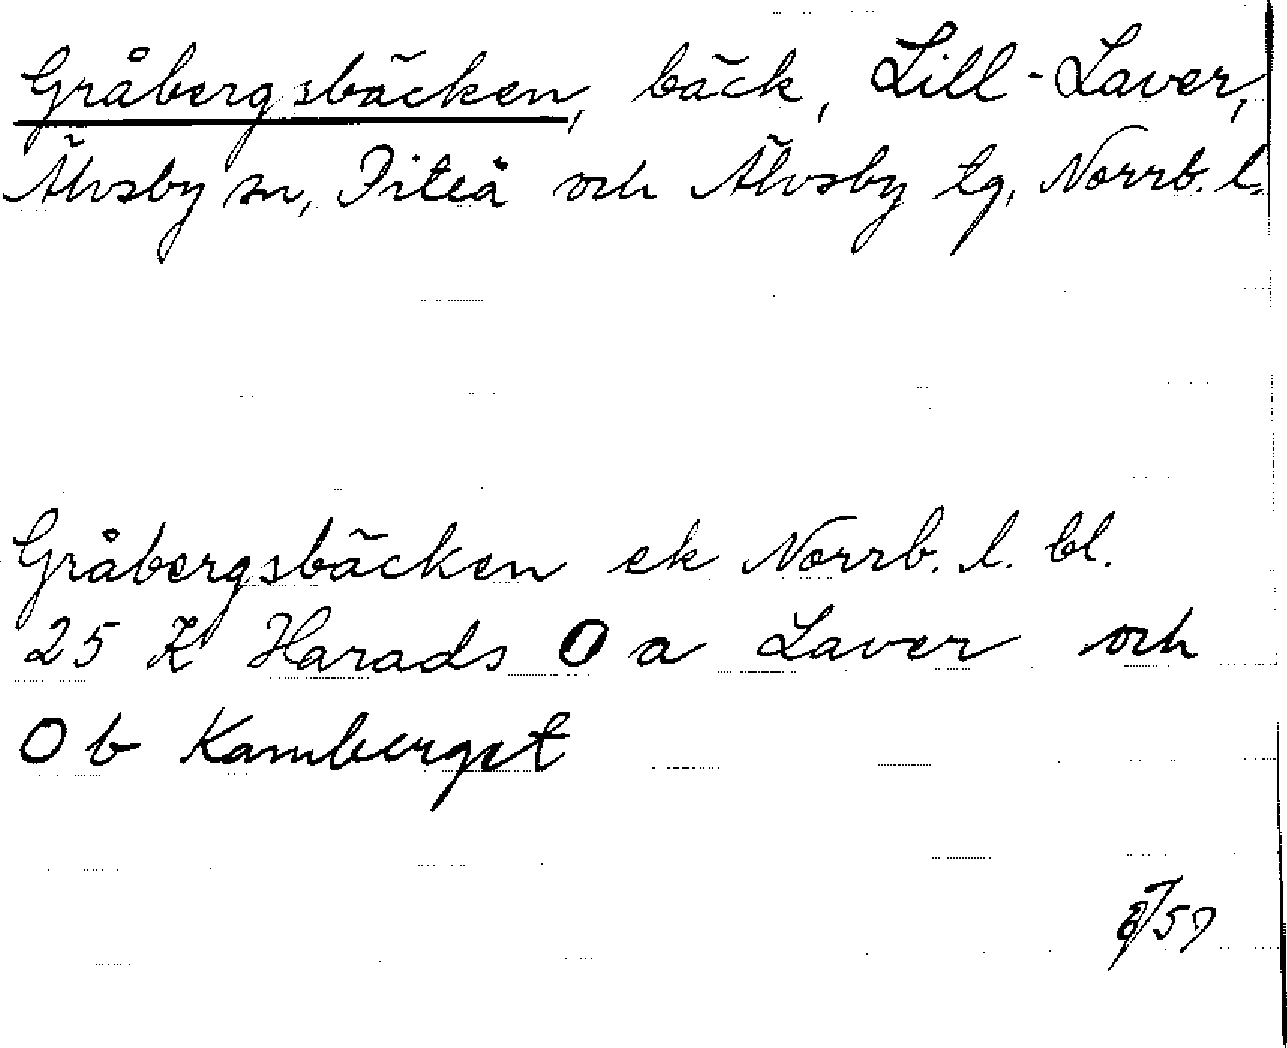 Gråbergsbäcken, bäck, Lill-Laver,
Älvsby sn, Piteå och Älvsby tg, Norrb. l.
Gråbergsbäcken ek Norrb. l. bl.
25 K Harads O a Laver och
O b Kamberget